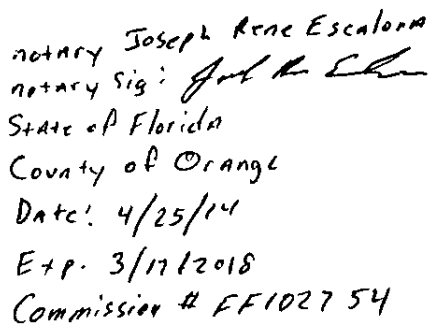 notary Joseph Rene Escalona
notary Sig:
State of Florida
County of Orange
Date: 4/25/14
Exp. 3/17/2018
Commission # FF102754